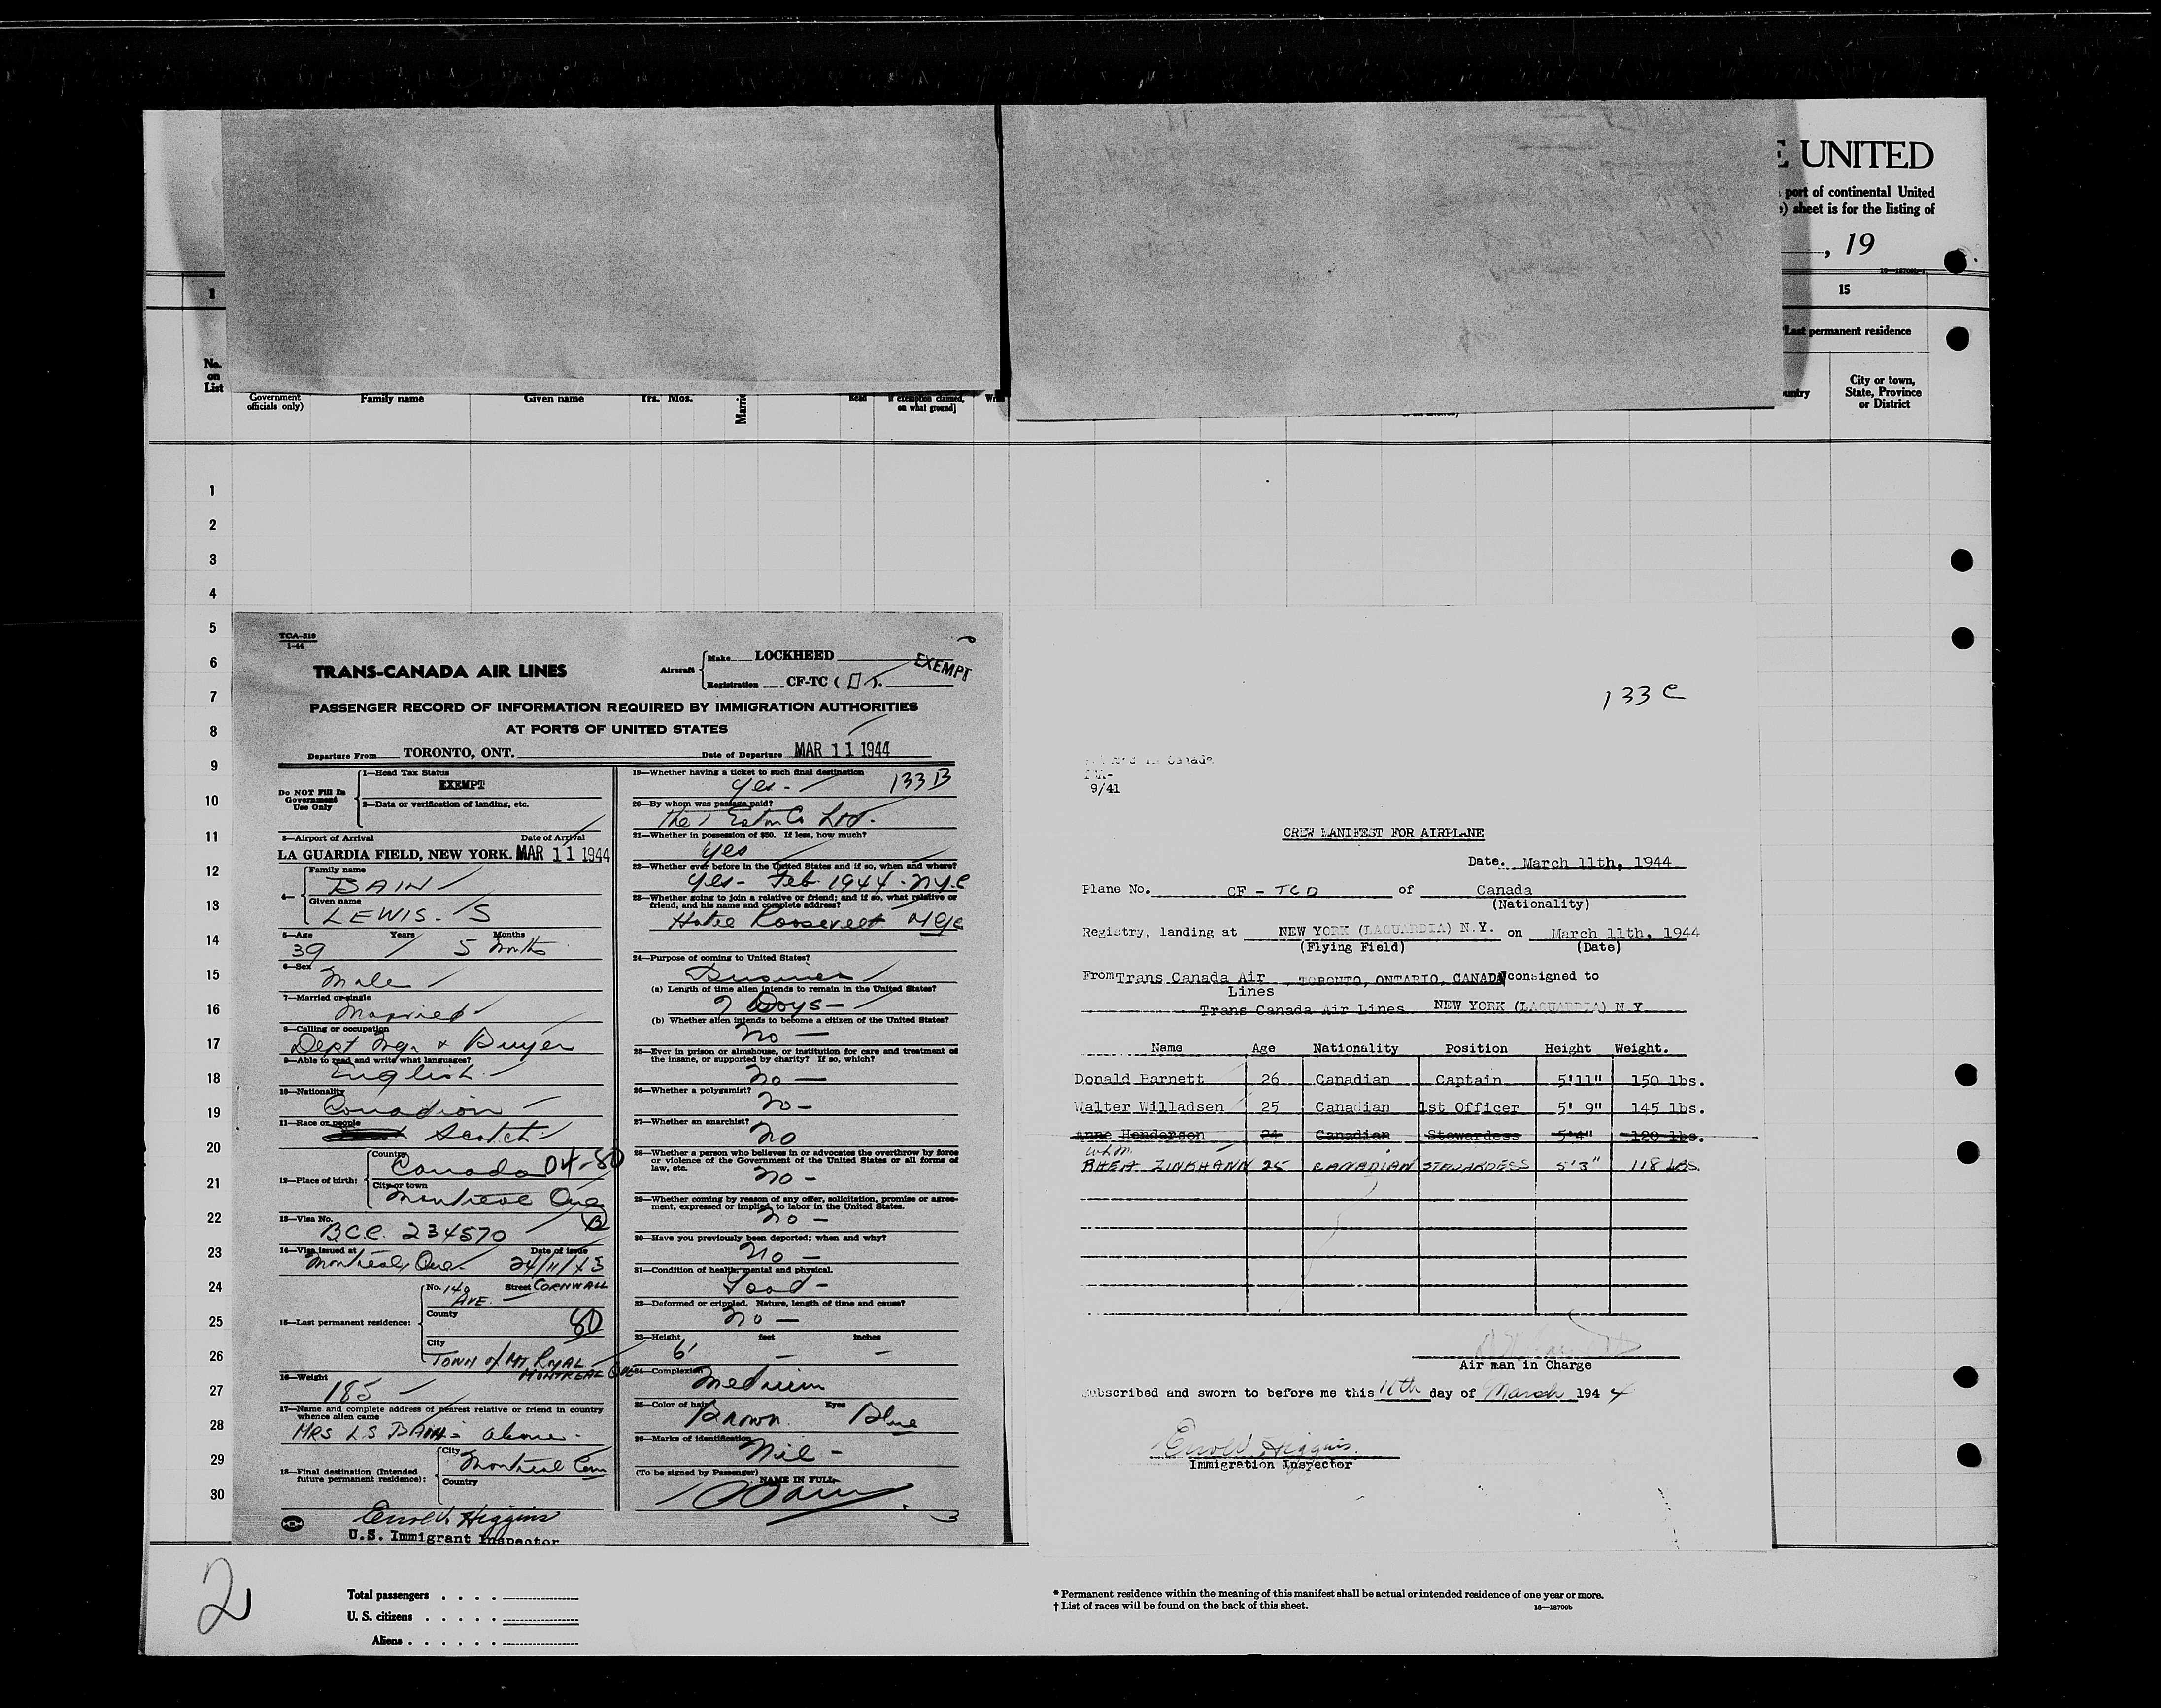 E UNITED
port of continental United
) sheet is for the listing of
, 19
1
15
Last permanent residence
No.
on
List
Government
officials only)
Family name
Given name
Yrs. Mos.
Read
if exemption claimed,
on what ground]
City or town,
State, Province
or District
1
2
3
4
5
6
7
8
9
10
11
12
13
14
15
16
17
18
19
20
21
22
23
24
25
26
27
28
29
30
TCA-519
1-44
TRANS-CANADA AIR LINES
Aircraft
Make LOCKHEED
Registration CF-TC ( D ).
EXEMPT
PASSENGER RECORD OF INFORMATION REQUIRED BY IMMIGRATION AUTHORITIES
AT PORTS OF UNITED STATES
Departure From TORONTO, ONT. Date of Departure MAR 11 1944
Do NOT Fill In
Government
Use Only
1—Head Tax Status
EXEMPT
2—Data or verification of landing, etc.
3—Airport of Arrival Date of Arrival
LA GUARDIA FIELD, NEW YORK. MAR 11 1944
4—
Family name
BAIN
Given name
LEWIS. S
5—Age Years Months
39 5 months
6—Sex
Male
7—Married or single
Married
8—Calling or occupation
Dept Mgr & Buyer
9—Able to read and write what languages?
English
10—Nationality
Canadian
11—Race or people
Scotch
12—Place of birth:
Country
Canada 04-80
City or town
Montreal Que
13—Visa No. B
B.C.C. 234570
14—Visa issued at Date of issue
Montreal, Que. 24/11/43
15—Last permanent residence:
No. 140 Street CORNWALL
AVE.
County
80
City
TOWN of MT ROYAL
MONTREAL QUE
16—Weight
185
17—Name and complete address of nearest relative or friend in country
whence alien came
MRS LS BAIN - above -
18—Final destination (Intended
future permanent residence):
City
Montreal Can
Country
Errol V. Higgins
U.S. Immigrant Inspector
19—Whether having a ticket to such final destination
Yes - 133 B
20—By whom was passage paid?
The T Eaton Co Ltd.
21—Whether in possession of $50. If less, how much?
Yes
22—Whether ever before in the United States and if so, when and where?
Yes - Feb. 1944 - N.Y.C
23—Whether going to join a relative or friend; and if so, what relative or
friend, and his name and complete address?
Hotel Roosevelt NYC
24—Purpose of coming to United States?
Business
(a) Length of time alien intends to remain in the United States?
7 Days -
(b) Whether alien intends to become a citizen of the United States?
No —
25—Ever in prison or almshouse, or institution for care and treatment of
the insane, or supported by charity? If so, which?
No —
26—Whether a polygamist?
No -
27—Whether an anarchist?
No
28—Whether a person who believes in or advocates the overthrow by force
or violence of the Government of the United States or all forms of
law, etc.
No -
29—Whether coming by reason of any offer, solicitation, promise or agree-
ment, expressed or implied, to labor in the United States.
No -
30—Have you previously been deported; when and why?
No —
31—Condition of health, mental and physical.
Good -
32—Deformed or crippled. Nature, length of time and cause?
No —
33—Height feet inches
6'
34—Complexion
Medium
35—Color of hair Eyes
Brown. Blue
36—Marks of identification
Nil -
(To be signed by Passenger)
NAME IN FULL
3
133 C
9/41
CREW MANIFEST FOR AIRPLANE
Date. March 11th, 1944
Plane No. CF - TCD of Canada
(Nationality)
Registry, landing at NEW YORK (LAGUARDIA) N.Y. on March 11th, 1944
(Flying Field) (Date)
From Trans Canada Air , TORONTO, ONTARIO, CANADA consigned to
Lines
Trans Canada Air Lines NEW YORK (LAGUARDIA) N.Y
Name Age Nationality Position Height Weight.
Donald Barnett 26 Canadian Captain 5'11" 150 lbs.
Walter Willadsen 25 Canadian 1st Officer 5' 9" 145 lbs.
Anne Henderson 24 Canadian Stewardess 5'4" 120 lbs.
RHEA ZINKHANN 25 CANADIAN STEWARDESS 5'3" 118 LBS.
Air man in Charge
Subscribed and sworn to before me this 10th day of March 194 4
Errol V. Higgins
Immigration Inspector
2
Total passengers . . . .
U. S. citizens . . . . .
Aliens . . . . . .
* Permanent residence within the meaning of this manifest shall be actual or intended residence of one year or more.
† List of races will be found on the back of this sheet.
16—18709b